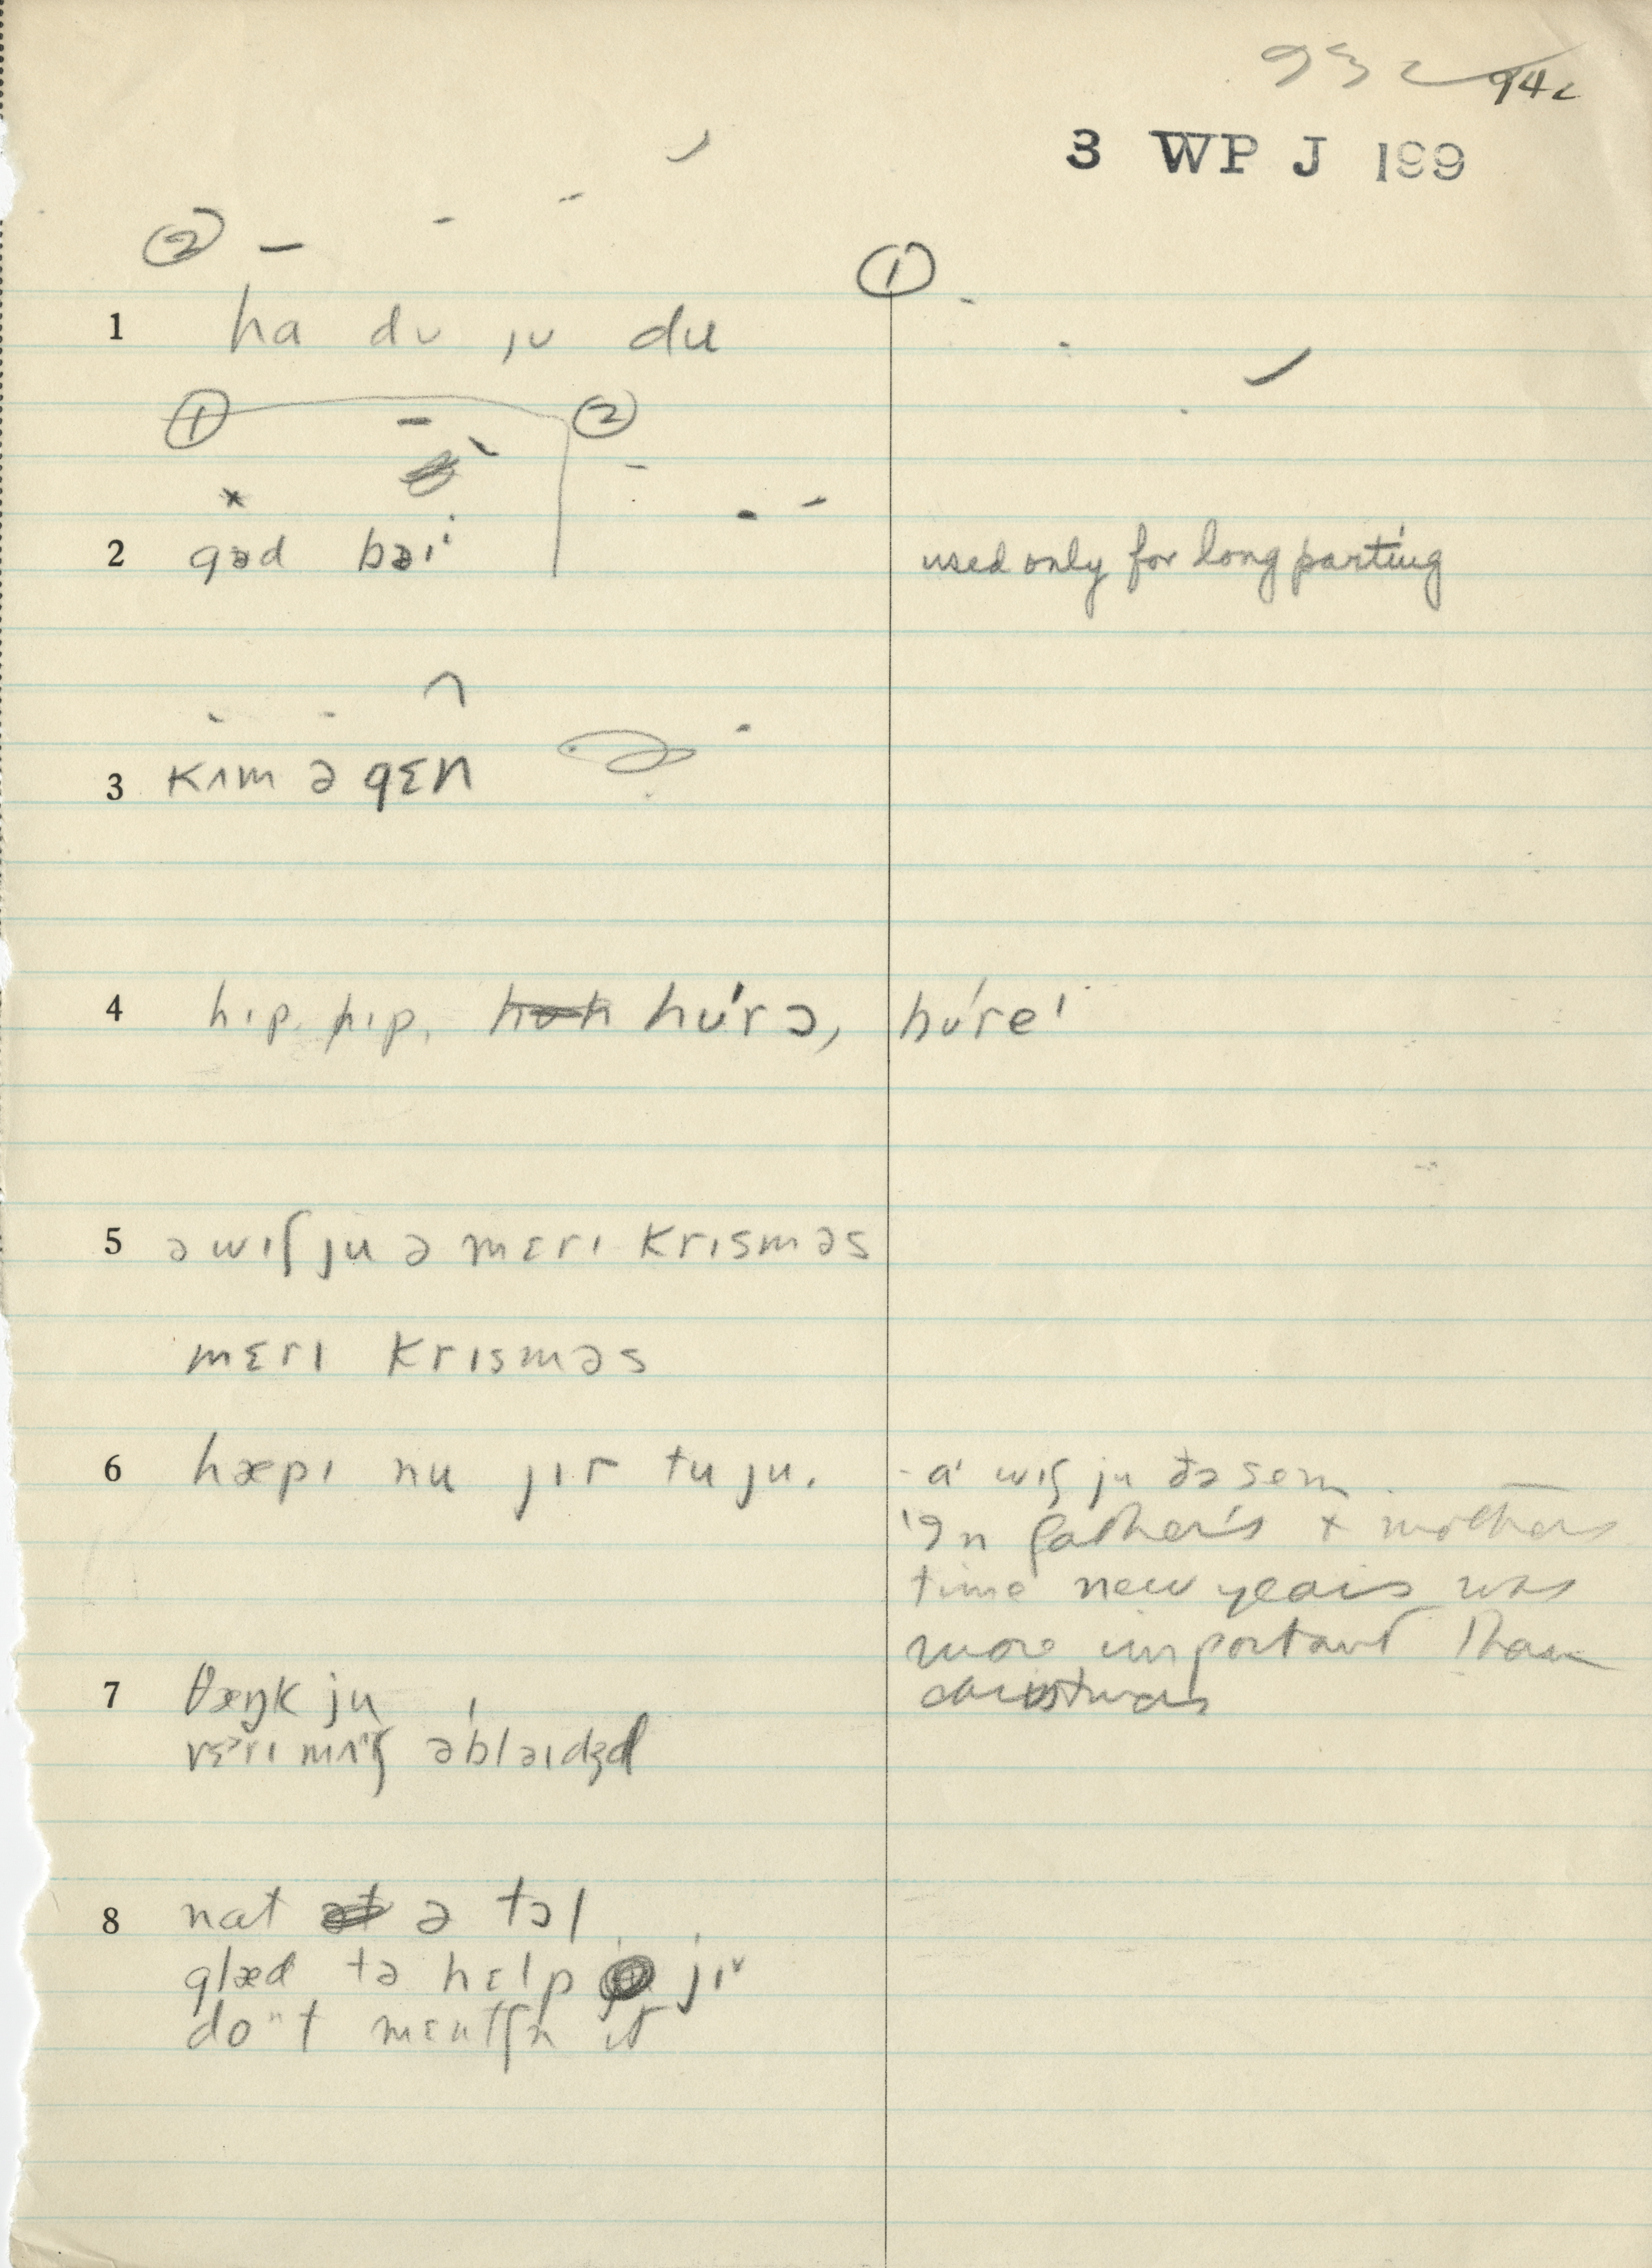 93c 94c
3 WP J 199
② ①
1 ha dʊ jʊ du
① ②
2 gəd bəi used only for long parting
3 kʌm ə gɛn
4 hɪp hɪp, hʊ́rɔ, hʊ́reˈ
5 ə wɪʃ ju ə mɛrɪ krɪsməs
mɛrɪ krɪsməs
6 hæpɪ nu jɪr tu ju. aˈ wɪʃ ju ðə sem
In father's + mothers
time new years was
more important than
christmas
7 θæŋk ju
vɛrɪ mʌtʃ əblaɪdʒd
8 nat ə tɔl
glæd tə hɛlp jɪʊ
doʊnt mɛntʃn ɪt